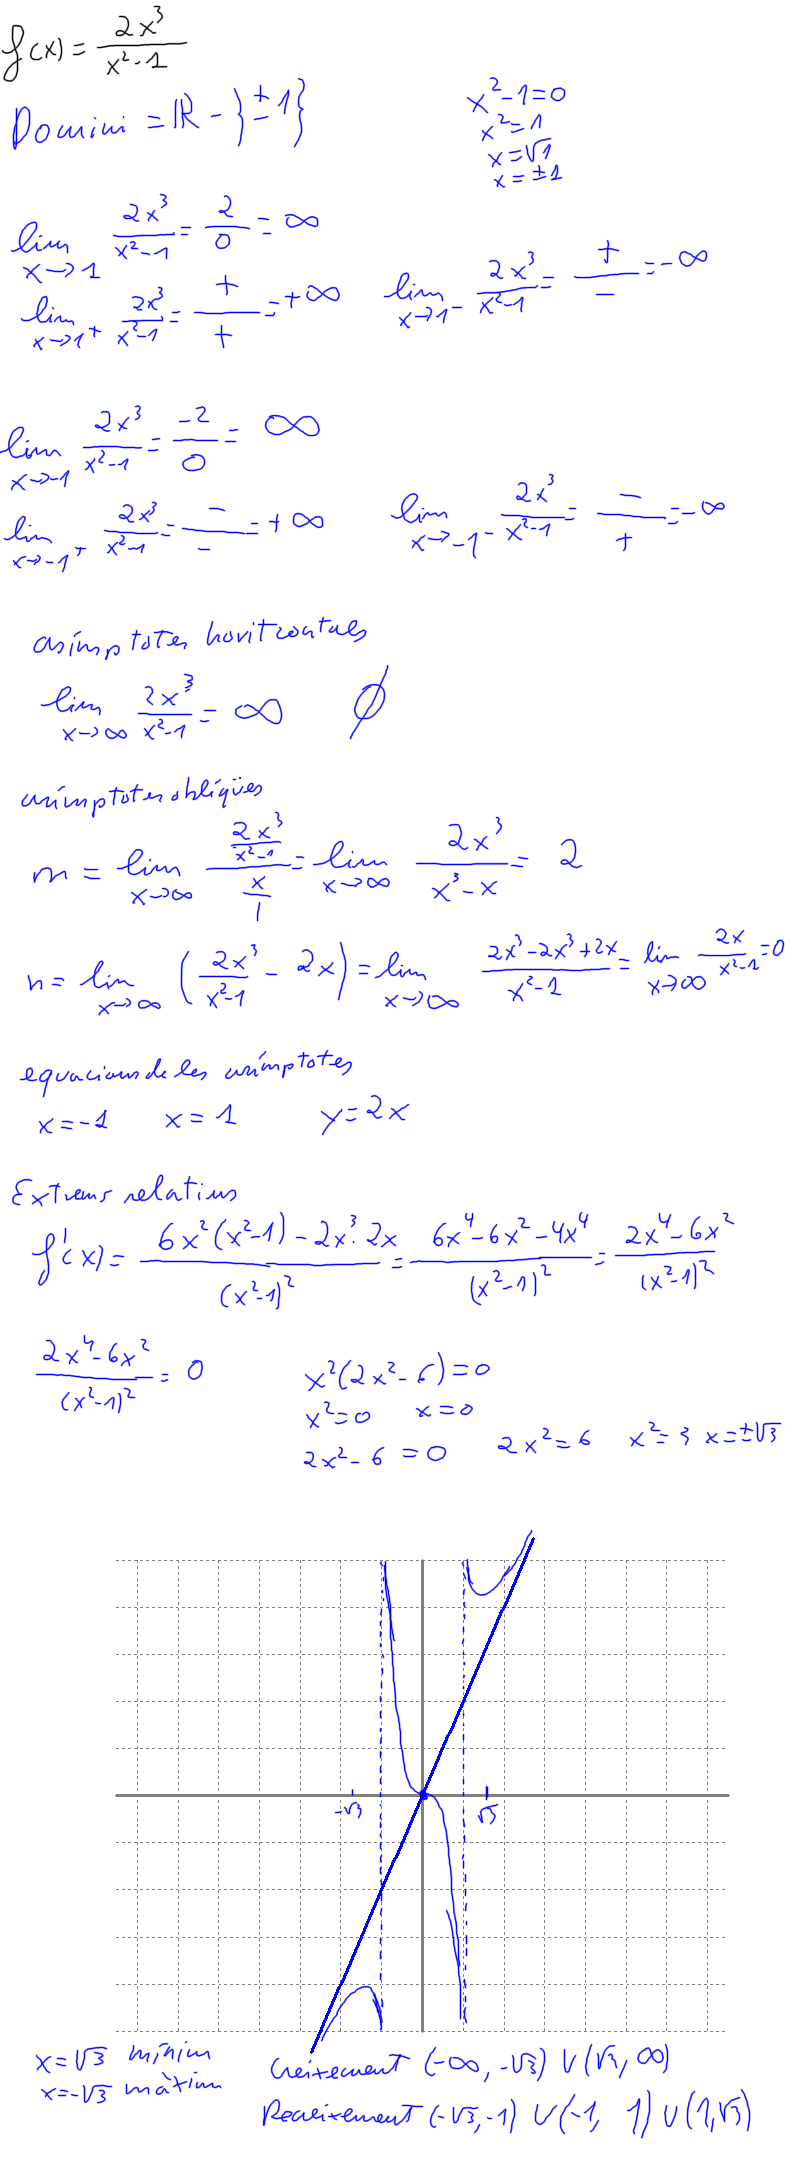 f(x) = 2x³/(x²-1)
Domini = ℝ - }±1}
x²-1=0
x²=1
x=√1
x=±1
lim x→1 2x³/(x²-1) = 2/0 = ∞
lim x→1+ 2x³/(x²-1) = +/+ = +∞
lim x→1- 2x³/(x²-1) = +/- = -∞
lim x→-1 2x³/(x²-1) = -2/0 = ∞
lim x→-1+ 2x³/(x²-1) = -/- = +∞
lim x→-1- 2x³/(x²-1) = -/+ = -∞
asímptotes horitzontals
lim x→∞ 2x³/(x²-1) = ∞ ∅
asímptotes obliqües
m = lim x→∞ (2x³/(x²-1))/(x/1) = lim x→∞ 2x³/(x³-x) = 2
n = lim x→∞ (2x³/(x²-1) - 2x) = lim x→∞ (2x³-2x³+2x)/(x²-1) = lim x→∞ 2x/(x²-1) = 0
equacions de les asímptotes
x=-1 x=1 y=2x
Extrems relatius
f'(x) = (6x²(x²-1)-2x³·2x)/(x²-1)² = (6x⁴-6x²-4x⁴)/(x²-1)² = (2x⁴-6x²)/(x²-1)²
(2x⁴-6x²)/(x²-1)² = 0
x²(2x²-6)=0
x²=0 x=0
2x²-6=0 2x²=6 x²=3 x=±√3
-√3 √3
x=√3 mínim
x=-√3 màxim
Creixement (-∞, -√3) ∪ (√3, ∞)
Decreixement (-√3, -1) ∪ (-1, 1) ∪ (1, √3)